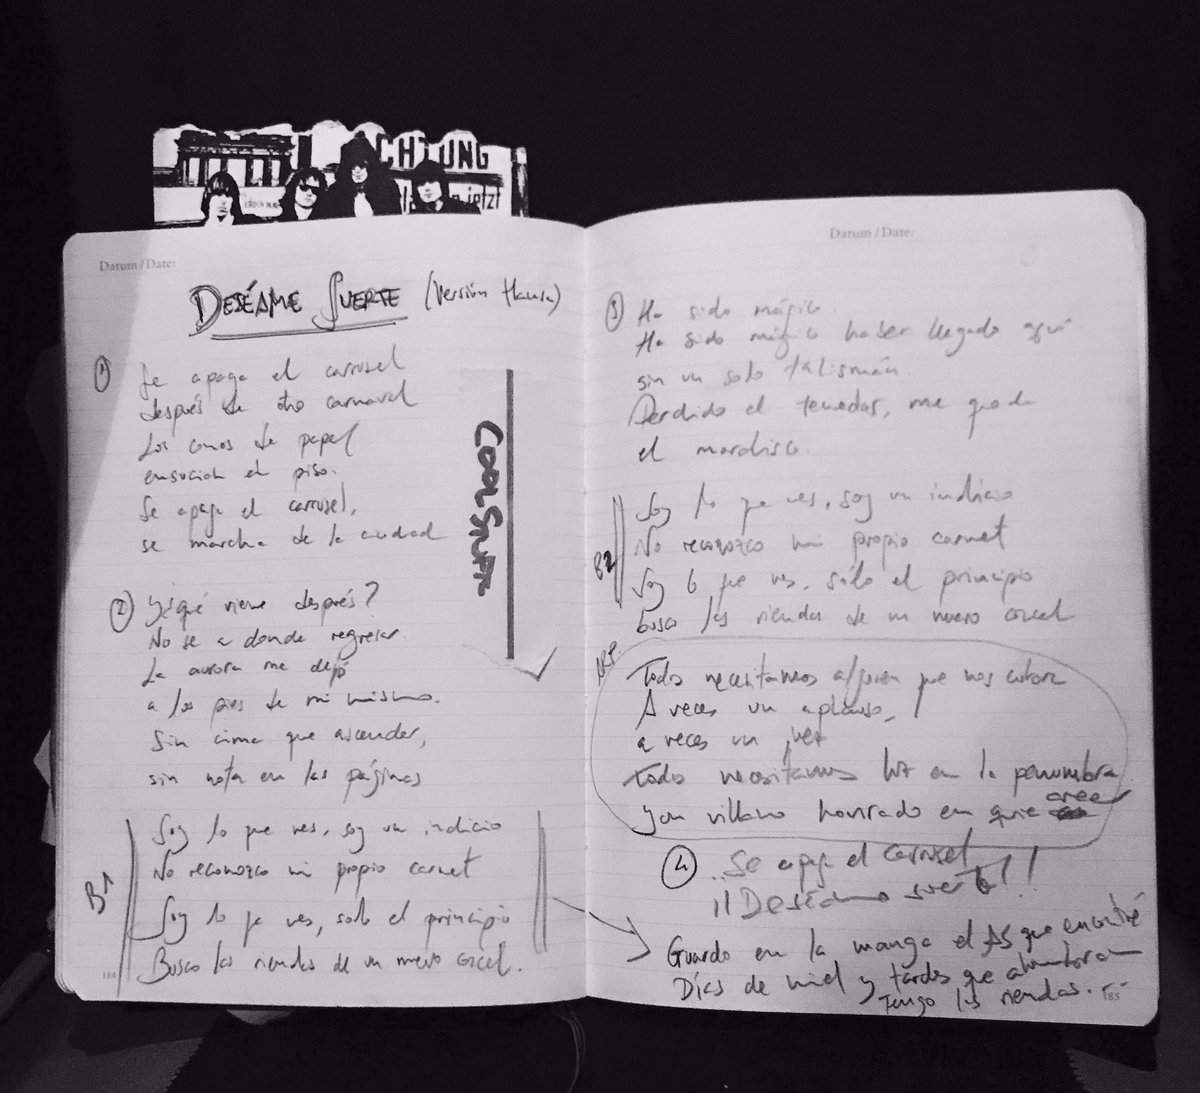 CHTUNG
jetzt
Datum / Date:
DESÉAME SUERTE (Versión Hansa)
1
Se apaga el carrusel
después de otro carnaval
Los conos de papel
ensucian el piso.
Se apaga el carrusel,
se marcha de la ciudad
2
Y ¿qué viene después?
No se a donde regresar
La aurora me dejó
a los pies de mi mismo.
Sin cima que ascender,
sin nota en las páginas
B1
Soy lo que ves, soy un indicio
No reconozco mi propio carnet
Soy lo que ves, solo el principio
Busco las riendas de un nuevo corcel.
184
COOL STUFF
Datum / Date:
3
Ha sido mágico.
Ha sido mágico haber llegado aquí
sin un solo talismán
Perdido el tenedor, me queda
el mordisco.
B2
Soy lo que ves, soy un indicio
No reconozco mi propio carnet
Soy lo que ves, sólo el principio
busco las riendas de un nuevo corcel
Todos necesitamos alguien que nos cubra
A veces un aplauso,
a veces un
Todos necesitamos luz en la penumbra
y un villano honrado en quien creer
4
..Se apaga el carrusel
¡¡Deséame suerte!!
Guardo en la manga el AS que encontré
Días de miel y tardes que alumbraran
Tengo las riendas...
185